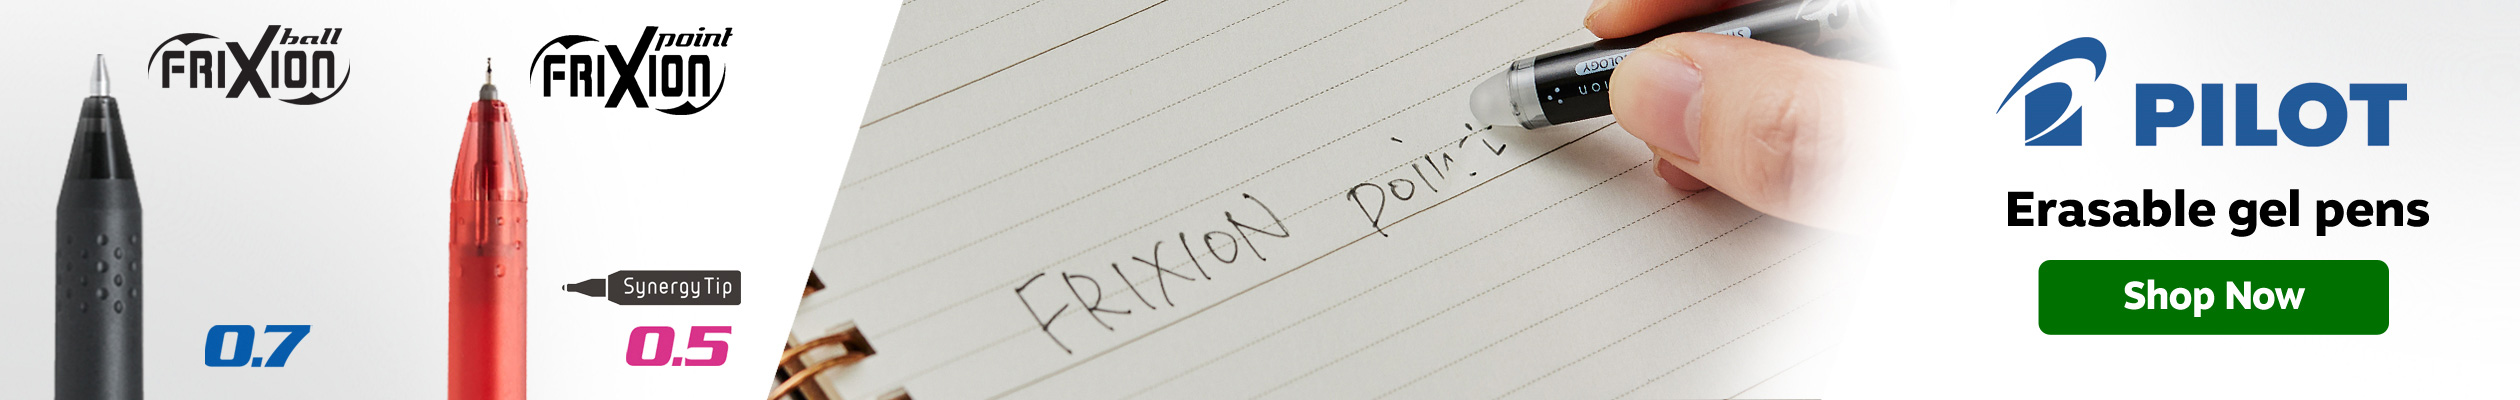 FRIXION ball
FRIXION point
SynergyTip
0.7
0.5
FRIXION point
PILOT
Erasable gel pens
Shop Now